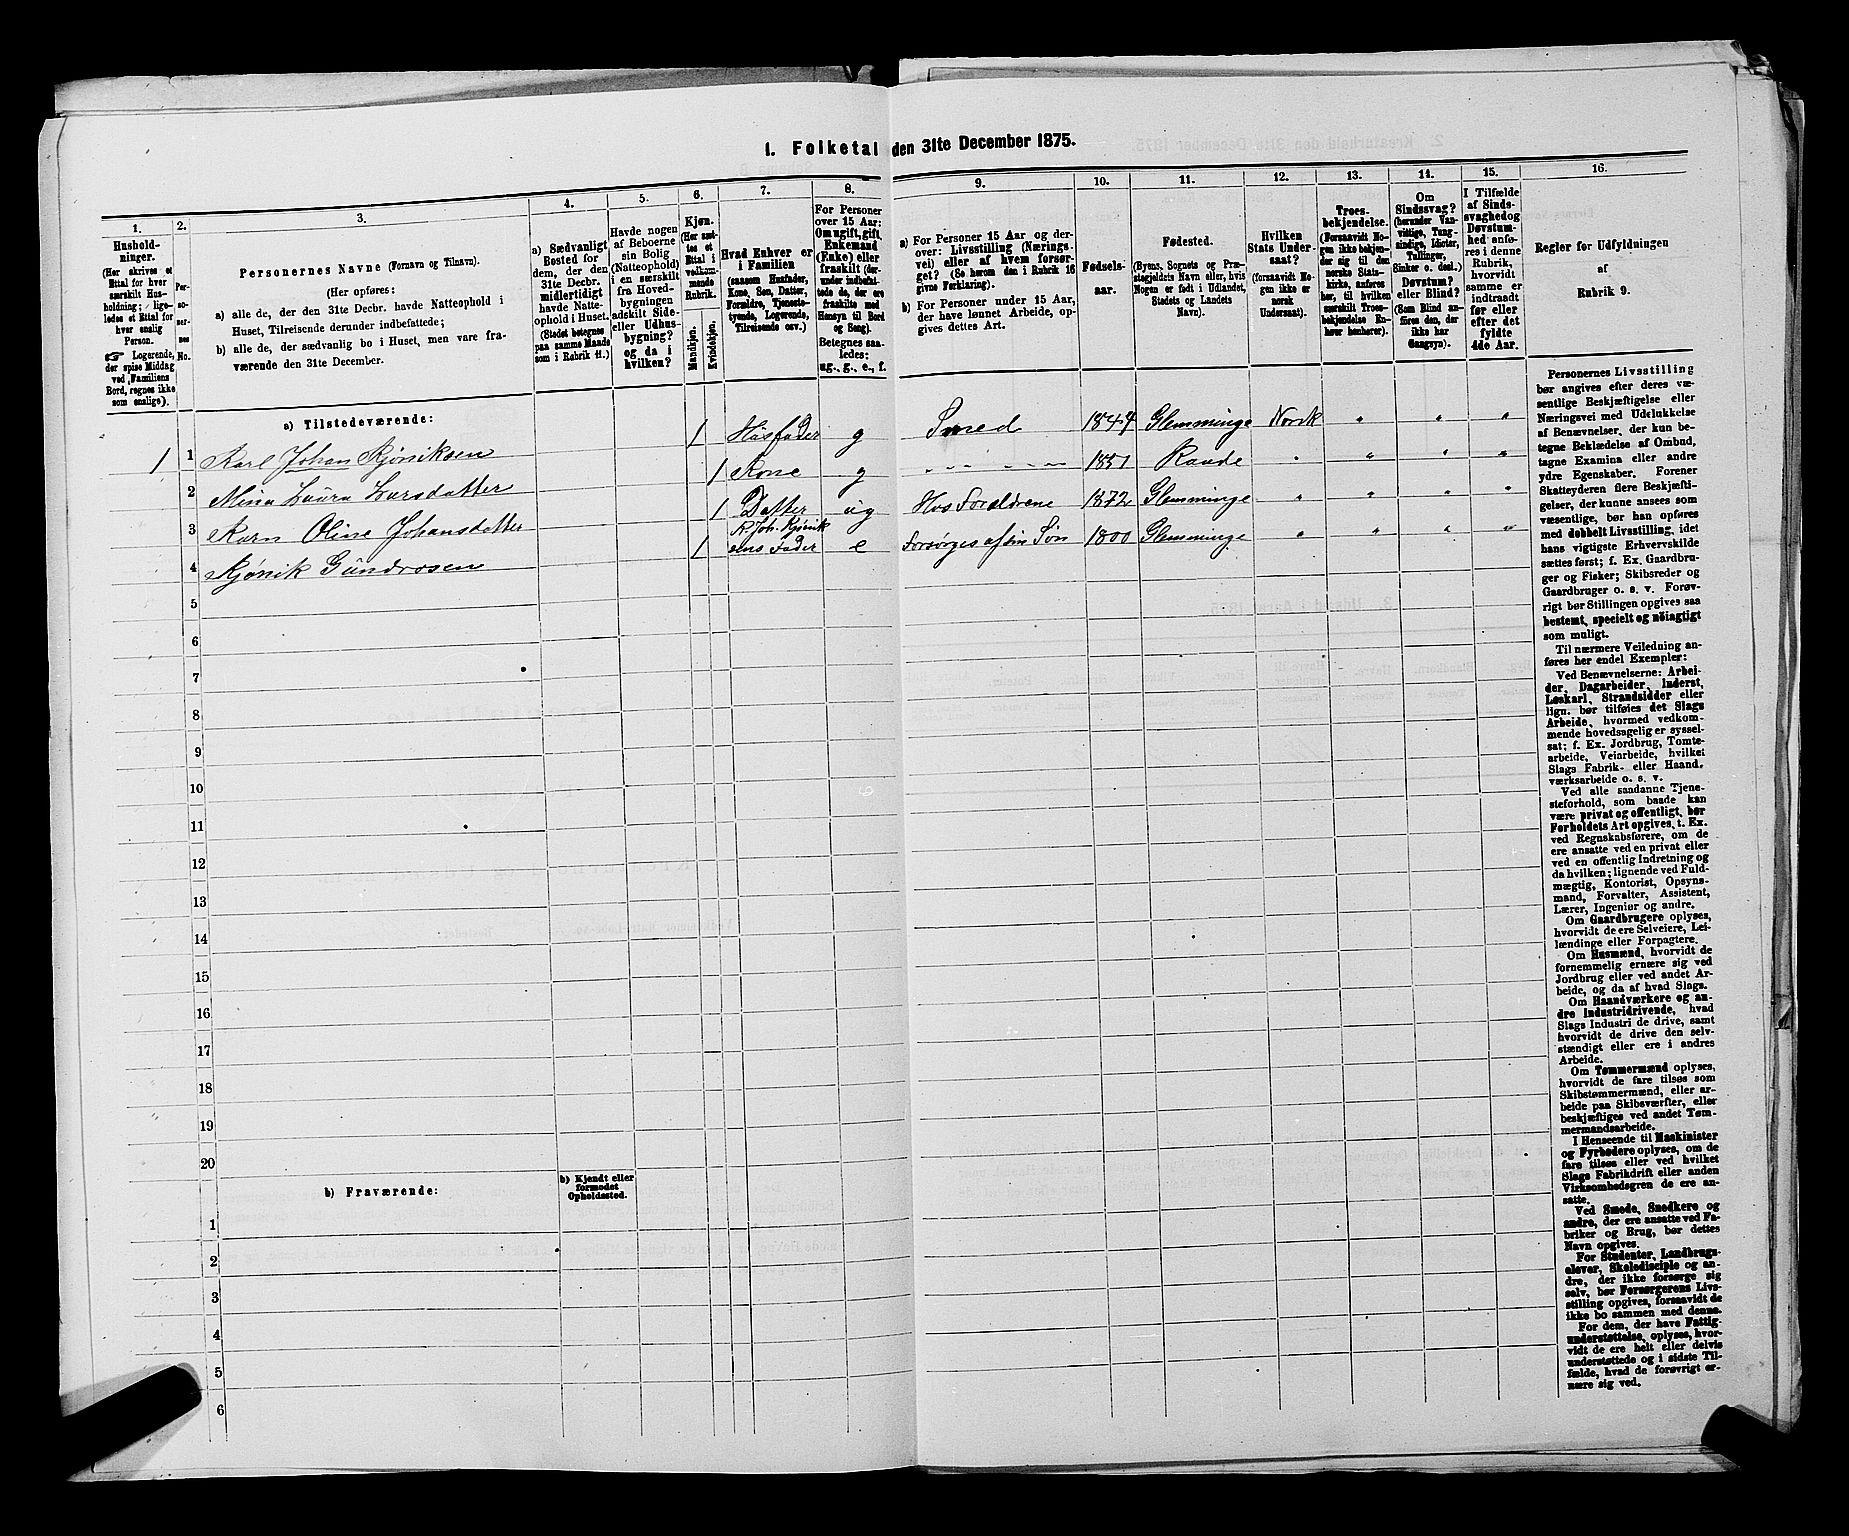 1. Folketal den 31te December 1875.
1. 2. 3. 4. 5. 6. 7. 8. 9. 10. 11. 12. 13. 14. 15. 16.
Hushold-
ninger.
(Her skrives et
Ettal for hver
særskilt Hus-
holdning; lige-
ledes et Ettal for
hver enslig
Person.
☞ Logerende,
der spise Middag
ved Familiens
Bord, regnes ikke
som enslige).
Per-
so-
ner-
nes
No.
Personernes Navne (Fornavn og Tilnavn).
(Her opføres:
a) alle de, der den 31te Decbr. havde Natteophold i
Huset, Tilreisende derunder indbefattede;
b) alle de, der sædvanlig bo i Huset, men vare fra-
værende den 31te December.
a) Sædvanligt
Bosted for
dem, der den
31te Decbr.
midlertidigt
havde Natte-
ophold i Huset.
(Stedet betegnes
paa samme Maade
som i Rubrik 11.)
Havde nogen
af Beboerne
sin Bolig
(Natteophold)
i en særskilt
fra Hoved-
bygningen
adskilt Side-
eller Udhus-
bygning?
og da i
hvilken?
Kjøn.
(Her sæt-
tes et
Ettal i
vedkom-
mende
Rubrik.
Mandkjøn.
Kvindekjøn.
Hvad Enhver er
i Familien
(saasom Husfader,
Kone, Søn, Datter,
Forældre, Tjeneste-
tyende, Logerende,
Tilreisende osv.)
For Personer
over 15 Aar:
Om ugift, gift,
Enkemand
(Enke) eller
fraskilt (der-
under indbefat-
tede de, der ere
fraskilte med
Hensyn til Bord
og Seng).
Betegnes saa-
ledes:
ug., g., e., f.
a) For Personer 15 Aar og der-
over: Livsstilling (Nærings-
vei) eller af hvem forsør-
get? (Se herom den i Rubrik 16
givne Forklaring).
b) For Personer under 15 Aar,
der have lønnet Arbeide, op-
gives dettes Art.
Fødsels-
aar.
Fødested.
(Byens, Sognets og Præ-
stegjeldets Navn eller, hvis
Nogen er født i Udlandet,
Stedets og Landets
Navn).
Hvilken
Stats Under-
saat?
(forsaavidt No-
gen ikke er
norsk
Undersaat).
Troes-
bekjendelse.
(Forsaavidt No-
gen ikke bekjen-
der sig til den
norske Stats-
kirke, anføres
her, til hvilken
særskilt Troes-
bekjendelse En-
hver henhører).
Om
Sindssvag?
(herunder Van-
vittige, Tung-
sindige, Idioter,
Tullinger,
Sinker o. desl.)
Døvstum?
eller Blind?
(Som Blind an-
føres den, der
ikke har
Gangsyn).
I Tilfælde
af Sinds-
svaghed og
Døvstum-
hed anfø-
res i denne
Rubrik,
hvorvidt
samme er
indtraadt
før eller
efter det
fyldte
4de Aar.
Regler for Udfyldningen
af
Rubrik 9.
a) Tilstedeværende:
1 1 Karl Johan Kjøniksen 1 Husfader g Smed 1844 Glemminge Norsk " " "
2 Mina Laura Larsdatter 1 Kone g 1851 Raade " " " "
3 Karn Oline Johansdatter 1 Datter ug Hos Foraldrene 1872 Glemminge " " " "
4 Kjönik Gundrosen 1 K Joh. Kjønik
ens Fader e Forsörges af sin Sön 1800 Glemminge " " " "
5
6
7
8
9
10
11
12
13
14
15
16
17
18
19
20
b) Fraværende:
b) Kjendt eller
formodet
Opholdssted.
1
2
3
4
5
6
Personernes Livsstilling
bør angives efter deres væ-
sentlige Beskjæftigelse eller
Næringsvei med Udelukkelse
af Benævnelser, der kun be-
tegne Beklædelse af Ombud,
tagne Examina eller andre
ydre Egenskaber. Forener
Skatteyderen flere Beskjæfti-
gelser, der kunne ansees som
væsentlige, bør han opføres
med dobbelt Livsstilling, idet
hans vigtigste Erhvervskilde
sættes først; f. Ex. Gaardbru-
ger og Fisker; Skibsreder og
Gaardbruger o. s. v. Forøv-
rigt bør Stillingen opgives saa
bestemt, specielt og nöiagtigt
som muligt.
Til nærmere Veiledning an-
føres her endel Exempler:
Ved Benævnelserne: Arbei-
der, Dagarbeider, Inderst,
Løskarl, Strandsidder eller
lign. bør tilføies det Slags
Arbeide, hvormed vedkom-
mende hovedsagelig er syssel-
sat; f. Ex. Jordbrug, Tomte-
arbeide, Veiarbeide, hvilket
Slags Fabrik- eller Haand-
værksarbeide o. s. v.
Ved alle saadanne Tjene-
steforhold, som baade kan
være privat og offentligt, bør
Forholdets Art opgives, t. Ex.
ved Regnskabsførere, om de
ere ansatte ved en privat eller
ved en offentlig Indretning og
da hvilken; lignende ved Fuld-
mægtig, Kontorist, Opsyns-
mand, Forvalter, Assistent,
Lærer, Ingeniør og andre.
Om Gaardbrugere oplyses,
hvorvidt de ere Selveiere, Lei-
lændinge eller Forpagtere.
Om Husmænd, hvorvidt de
fornemmelig ernære sig ved
Jordbrug eller ved andet Ar-
beide, og da af hvad Slags.
Om Haandværkere og an-
dre Industridrivende, hvad
Slags Industri de drive, samt
hvorvidt de drive den selv-
stændigt eller ere i andres
Arbeide.
Om Tømmermænd oplyses,
hvorvidt de fare tilsøs som
Skibstømmermænd, eller ar-
beide paa Skibsværfter, eller
beskjæftiges ved andet Tøm-
mermandsarbeide.
I Henseende til Maskinister
og Fyrbødere oplyses, om de
fare tilsøs eller ved hvilket
Slags Fabrikdrift eller anden
Virksomhedsgren de ere an-
satte.
Ved Smede, Snedkere og
andre, der ere ansatte ved Fa-
briker og Brug, bør dettes
Navn opgives.
For Studenter, Landbrugs-
elever, Skoledisciple og an-
dre, der ikke forsørge sig
selv, bør Forsørgerens Livs-
stilling opgives, forsaavidt de
ikke bo sammen med denne.
For dem, der have Fattig-
understøttelse, oplyses, hvor-
vidt de ere helt eller delvis
understøttede og i sidste Til-
fælde, hvad de forøvrigt er-
nære sig ved.